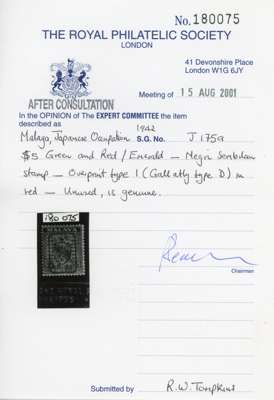 No. 180075
THE ROYAL PHILATELIC SOCIETY
LONDON
41 Devonshire Place
London W1G 6JY
Meeting of 15 AUG 2001
AFTER CONSULTATION
In the OPINION OF The EXPERT COMMITTEE the item
described as
Malaya, Japanese Occupation 1942 S.G. No. J 175a
$5 Green and Red / Emerald — Negri Sembilan
stamp — Overprint type 1 (Gallatly type D) in
red — Unused, is genuine.
180 075
MALAYA
Chairman
Submitted by R.W. Tompkins